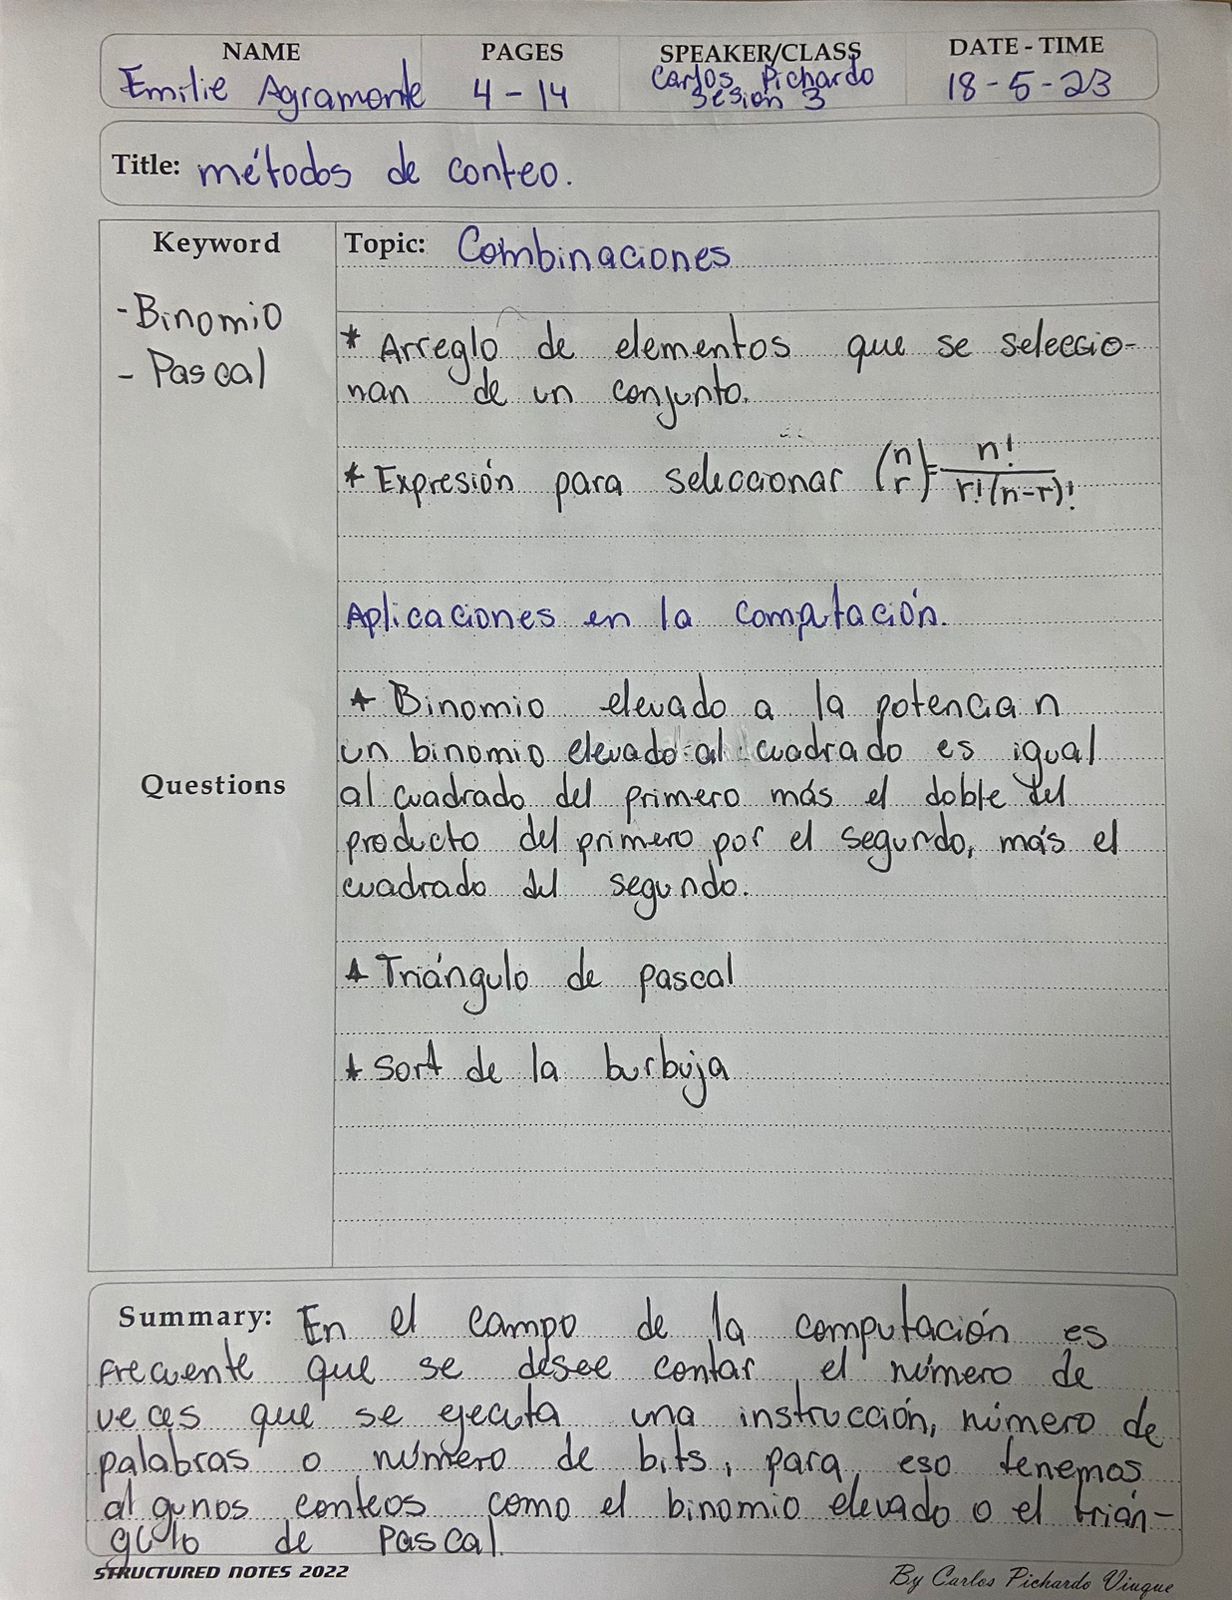 NAME PAGES SPEAKER/CLASS DATE - TIME
Emilie Agramonte 4 - 14 Carlos Pichardo Sesion 3 18 - 5 - 23
Title: métodos de conteo.
Keyword
- Binomio
- Pascal
Topic: Combinaciones
* Arreglo de elementos que se seleccio-
nan de un conjunto.
* Expresión para seleccionar (n r) = n! / r!(n-r)!
Aplicaciones en la computación.
* Binomio elevado a la potencia n
un binomio elevado al cuadrado es igual
al cuadrado del primero más el doble del
producto del primero por el segundo, más el
cuadrado del segundo.
* Triángulo de pascal
* Sort de la burbuja
Questions
Summary: En el campo de la computación es
frecuente que se desee contar el número de
veces que se ejecuta una instrucción, número de
palabras o número de bits, para eso tenemos
algunos conteos como el binomio elevado o el trián-
gulo de Pascal.
STRUCTURED NOTES 2022
By Carlos Pichardo Viuque